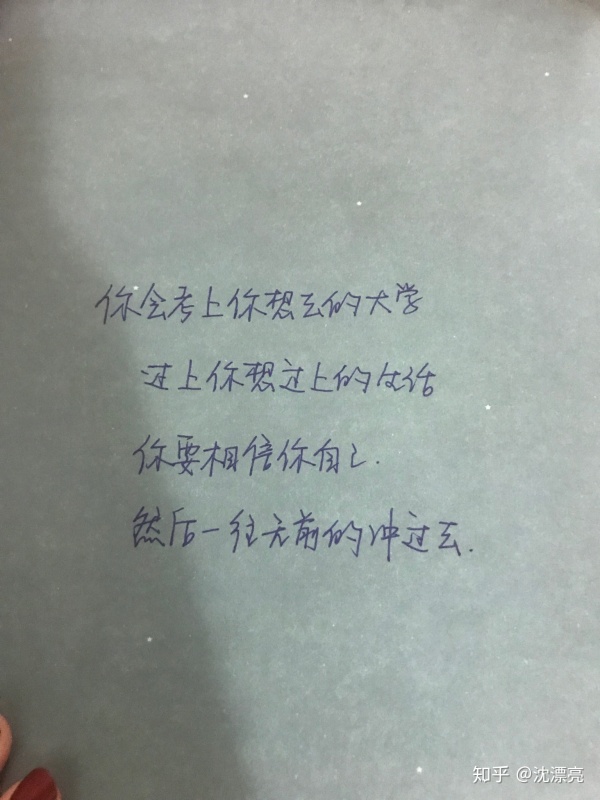 你会考上你想去的大学
过上你想过上的生活
你要相信你自己.
然后一往无前的冲过去.
知乎 @沈漂亮